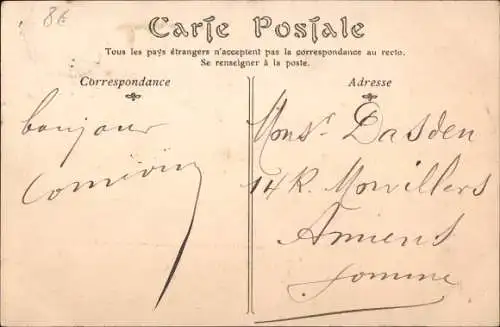 8€
Carte Postale
Tous les pays étrangers n'acceptent pas la correspondance au recto.
Se renseigner à la poste.
Correspondance
bonjour
Adresse
Monsr Dasden
14 R. Morvillers
Amiens
Somme